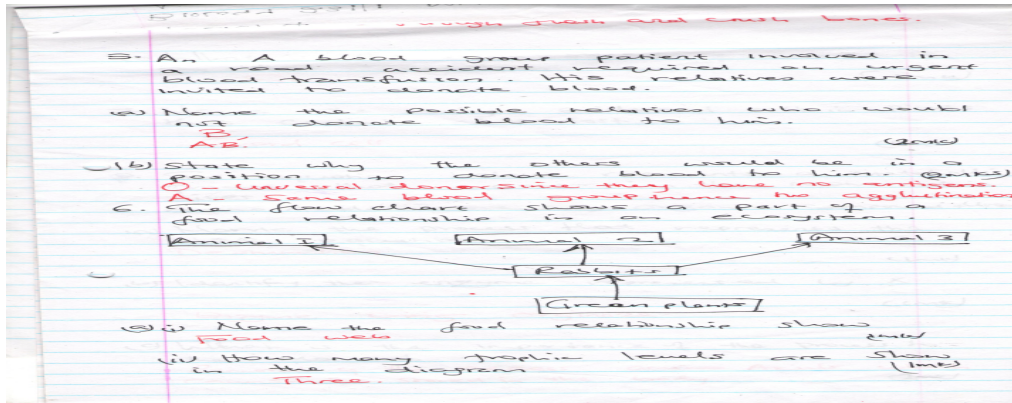 through flesh and crush bones.
5. An A blood group patient involved in
a road accident required an urgent
blood transfusion. His relatives were
invited to donate blood.
(a) Name the possible relatives who would
not donate blood to him.
B
AB. (2mks)
(b) State why the others would be in a
position to donate blood to him. (2mks)
O - Universal donor since they have no antigens.
A - Same blood group hence no agglutination
6. The flow chart shows a part of a
food relationship in an ecosystem.
Animal 1 Animal 2 Animal 3
Rabbits
Green plants
(a) (i) Name the food relationship show
food web (1mk)
(ii) How many trophic levels are show
in the diagram (1mk)
Three.